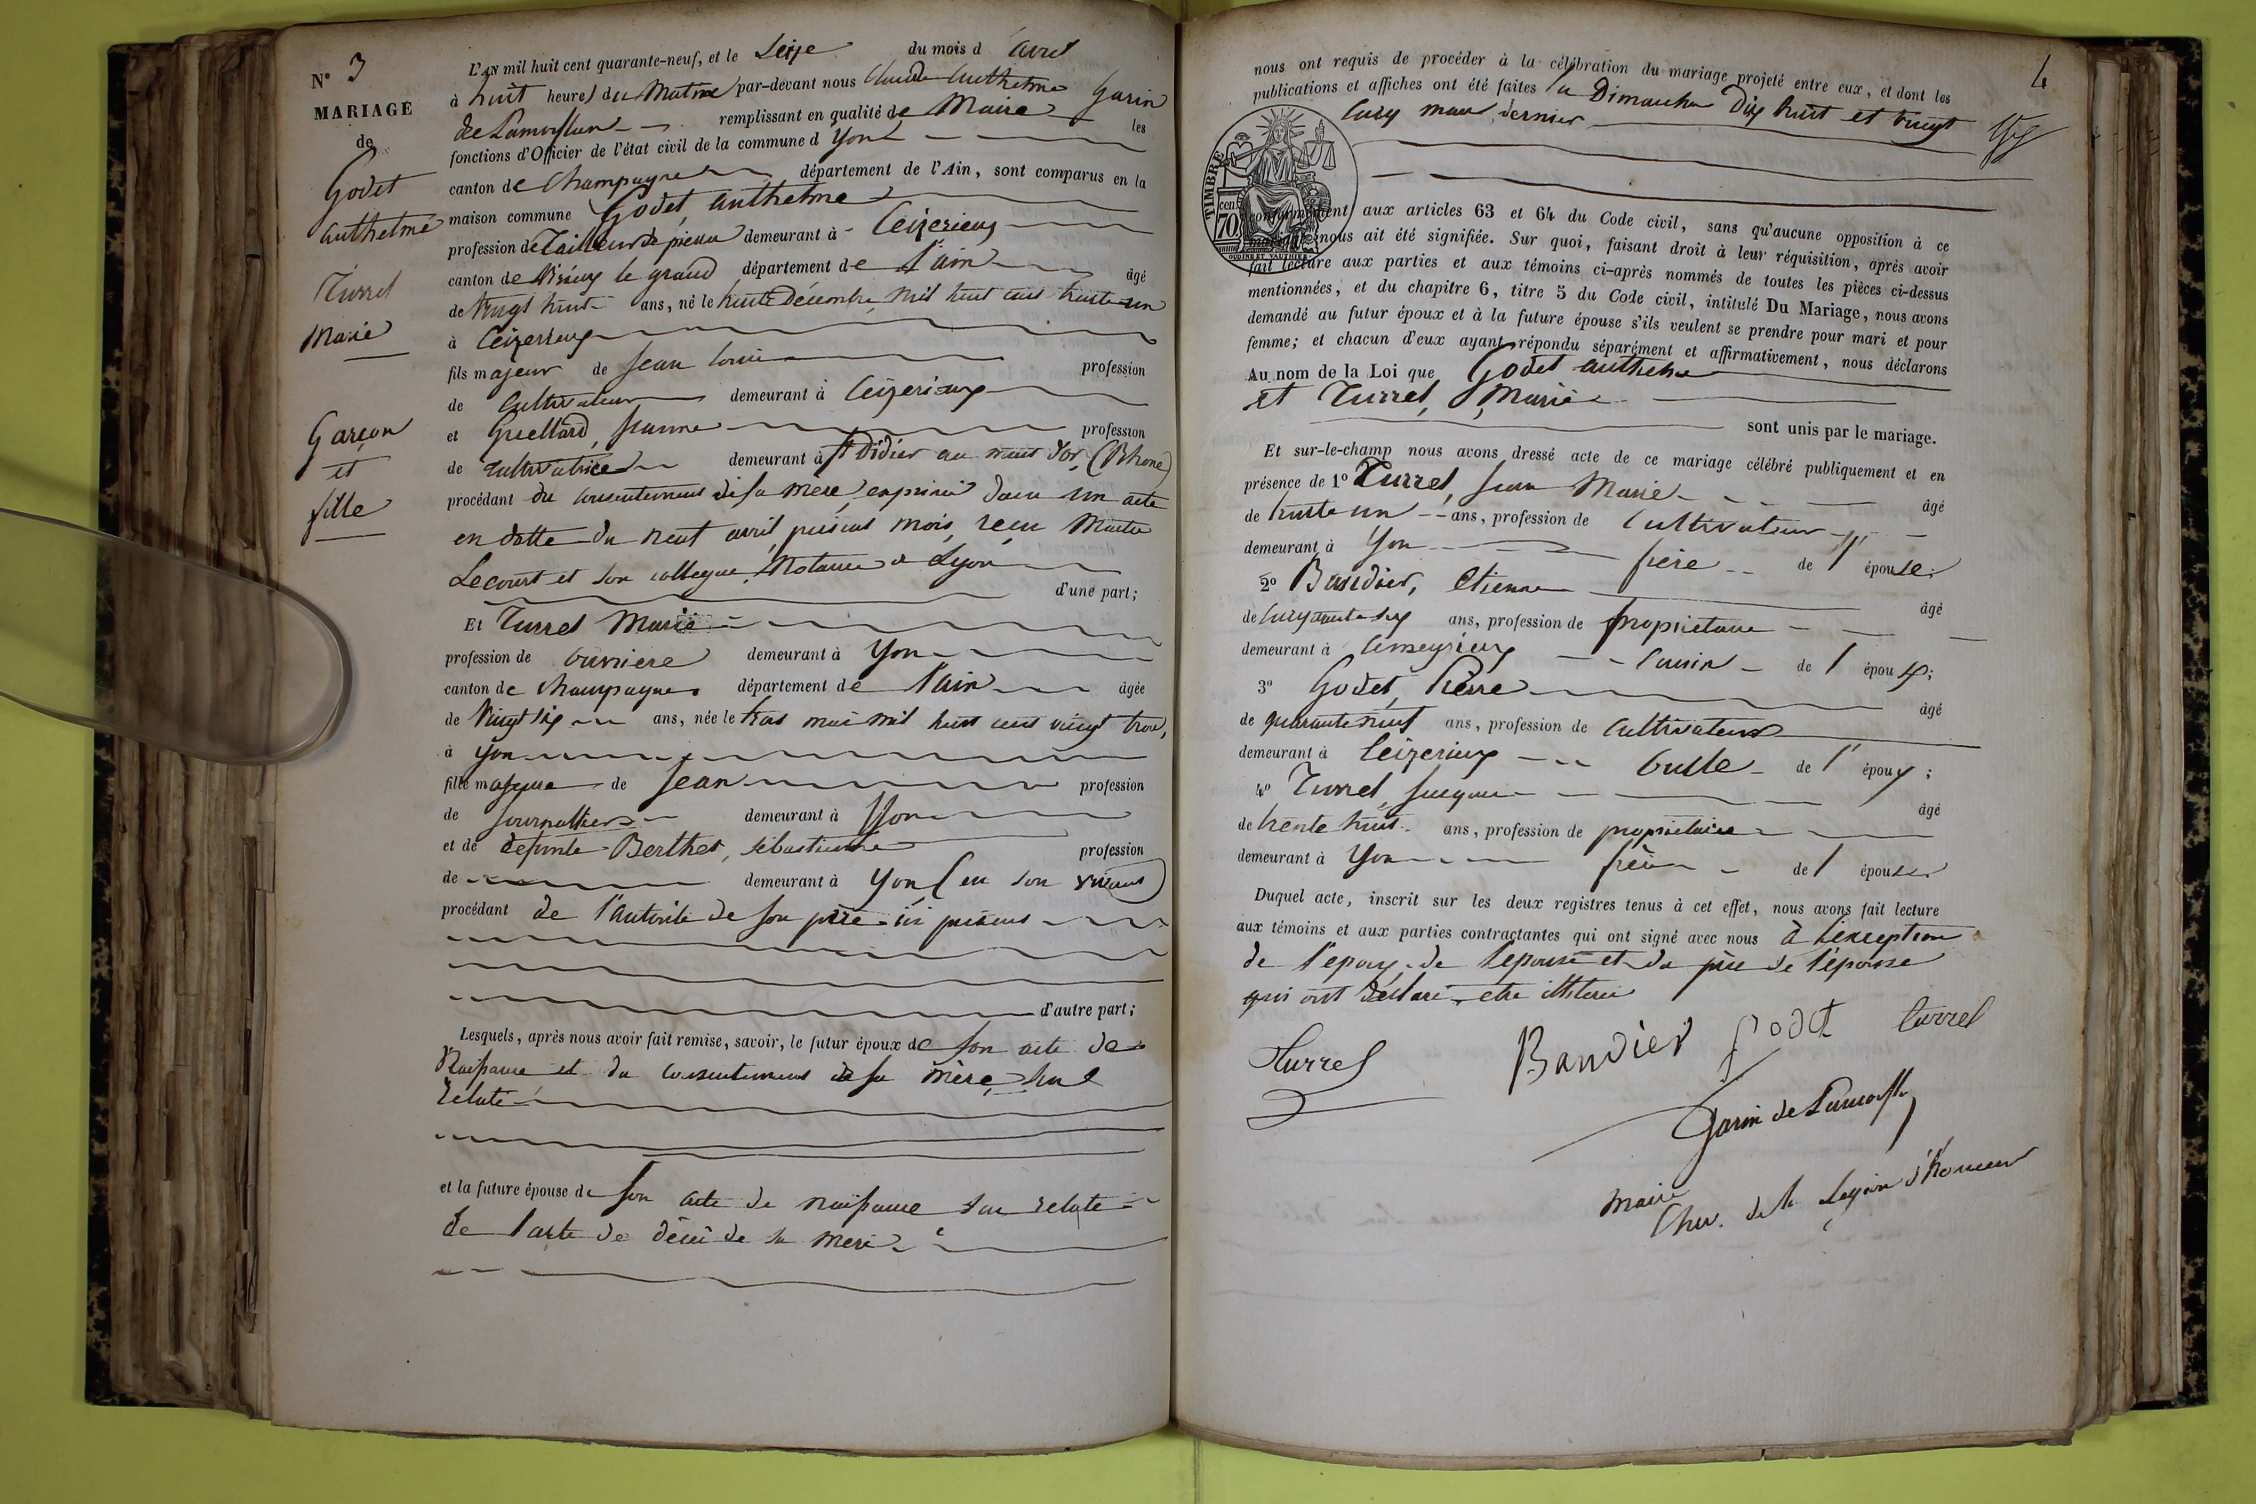 N° 3
MARIAGE
de
Godet
Anthelme
Turrel
Marie
Garçon
et
fille
L'AN mil huit cent quarante-neuf, et le Seize du mois d'avril
à huit heures du Matin par-devant nous Claude Anthelme Garin
de Lamorflan remplissant en qualité de Maire les
fonctions d'Officier de l'état civil de la commune d'Yon
canton de Champagne département de l'Ain, sont comparus en la
maison commune Godet, Anthelme
profession de Tailleur de pierre demeurant à Ceizerieux
canton de Virieux le grand département de l'ain âgé
de Vingt huit ans, né le trente Décembre mil huit cent
à Ceizerieux
fils majeur de Jean Louis profession
de Cultivateur demeurant à Ceizerieux
et Guellard, Jeanne profession
de cultivatrice demeurant à St Didier au mont d'or, (Rhone)
procédant du consentement de sa mère, exprimé dans un acte
en datte du neuf avril, présent mois, reçu Maitre
Lecourt et son collegue, Notaires à Lyon
d'une part;
Et Turrel Marie
profession de ouvriere demeurant à Yon
canton de Champagne département de l'ain âgée
de Vingt six ans, née le trois mai mil huit cent vingt trois,
à Yon
fille majeure de Jean profession
de journallier demeurant à Yon
et de defunte Berthet, sébastienne profession
de demeurant à Yon (en son vivant)
procédant de l'autorité de son père ici présent
d'autre part;
Lesquels, après nous avoir fait remise, savoir, le futur époux de son acte de
Naissance et du consentement de sa mère, sus
relaté
et la future épouse de son acte de naissance sus relaté
de l'acte de décès de sa mere
4
nous ont requis de procéder à la célébration du mariage projeté entre eux, et dont les
publications et affiches ont été faites les Dimanches Dix huit et vingt
cinq mars dernier
TIMBRE
cen
70
OUDINE ET VAUTHIER
conformément aux articles 63 et 64 du Code civil, sans qu'aucune opposition à ce
mariage nous ait été signifiée. Sur quoi, faisant droit à leur réquisition, après avoir
fait lecture aux parties et aux témoins ci-après nommés de toutes les pièces ci-dessus
mentionnées, et du chapitre 6, titre 5 du Code civil, intitulé Du Mariage, nous avons
demandé au futur époux et à la future épouse s'ils veulent se prendre pour mari et pour
femme; et chacun d'eux ayant répondu séparément et affirmativement, nous déclarons
Au nom de la Loi que Godet Anthelme
et Turrel, Marie
sont unis par le mariage.
Et sur-le-champ nous avons dressé acte de ce mariage célébré publiquement et en
présence de 1° Turrel, Jean Marie âgé
de trente un ans, profession de Cultivateur
demeurant à Yon frère de l'épouse;
2° Baudier, Etienne âgé
de cinquante six ans, profession de propriétaire
demeurant à cousin de l'époux;
3° Godet, Pierre âgé
de quarante neuf ans, profession de cultivateur
demeurant à Ceizerieux oncle de l'époux;
4° Turrel, Jacques âgé
de trente huit ans, profession de propriétaire
demeurant à Yon frère de l'épouse
Duquel acte, inscrit sur les deux registres tenus à cet effet, nous avons fait lecture
aux témoins et aux parties contractantes qui ont signé avec nous à l'exception
de l'époux, de l'épouse et du père de l'épouse
qui ont déclaré être illiterés
Turrel Baudier Godet turrel
Garin de Lamorfl
Maire
Chev. de la Legion d'Honneur